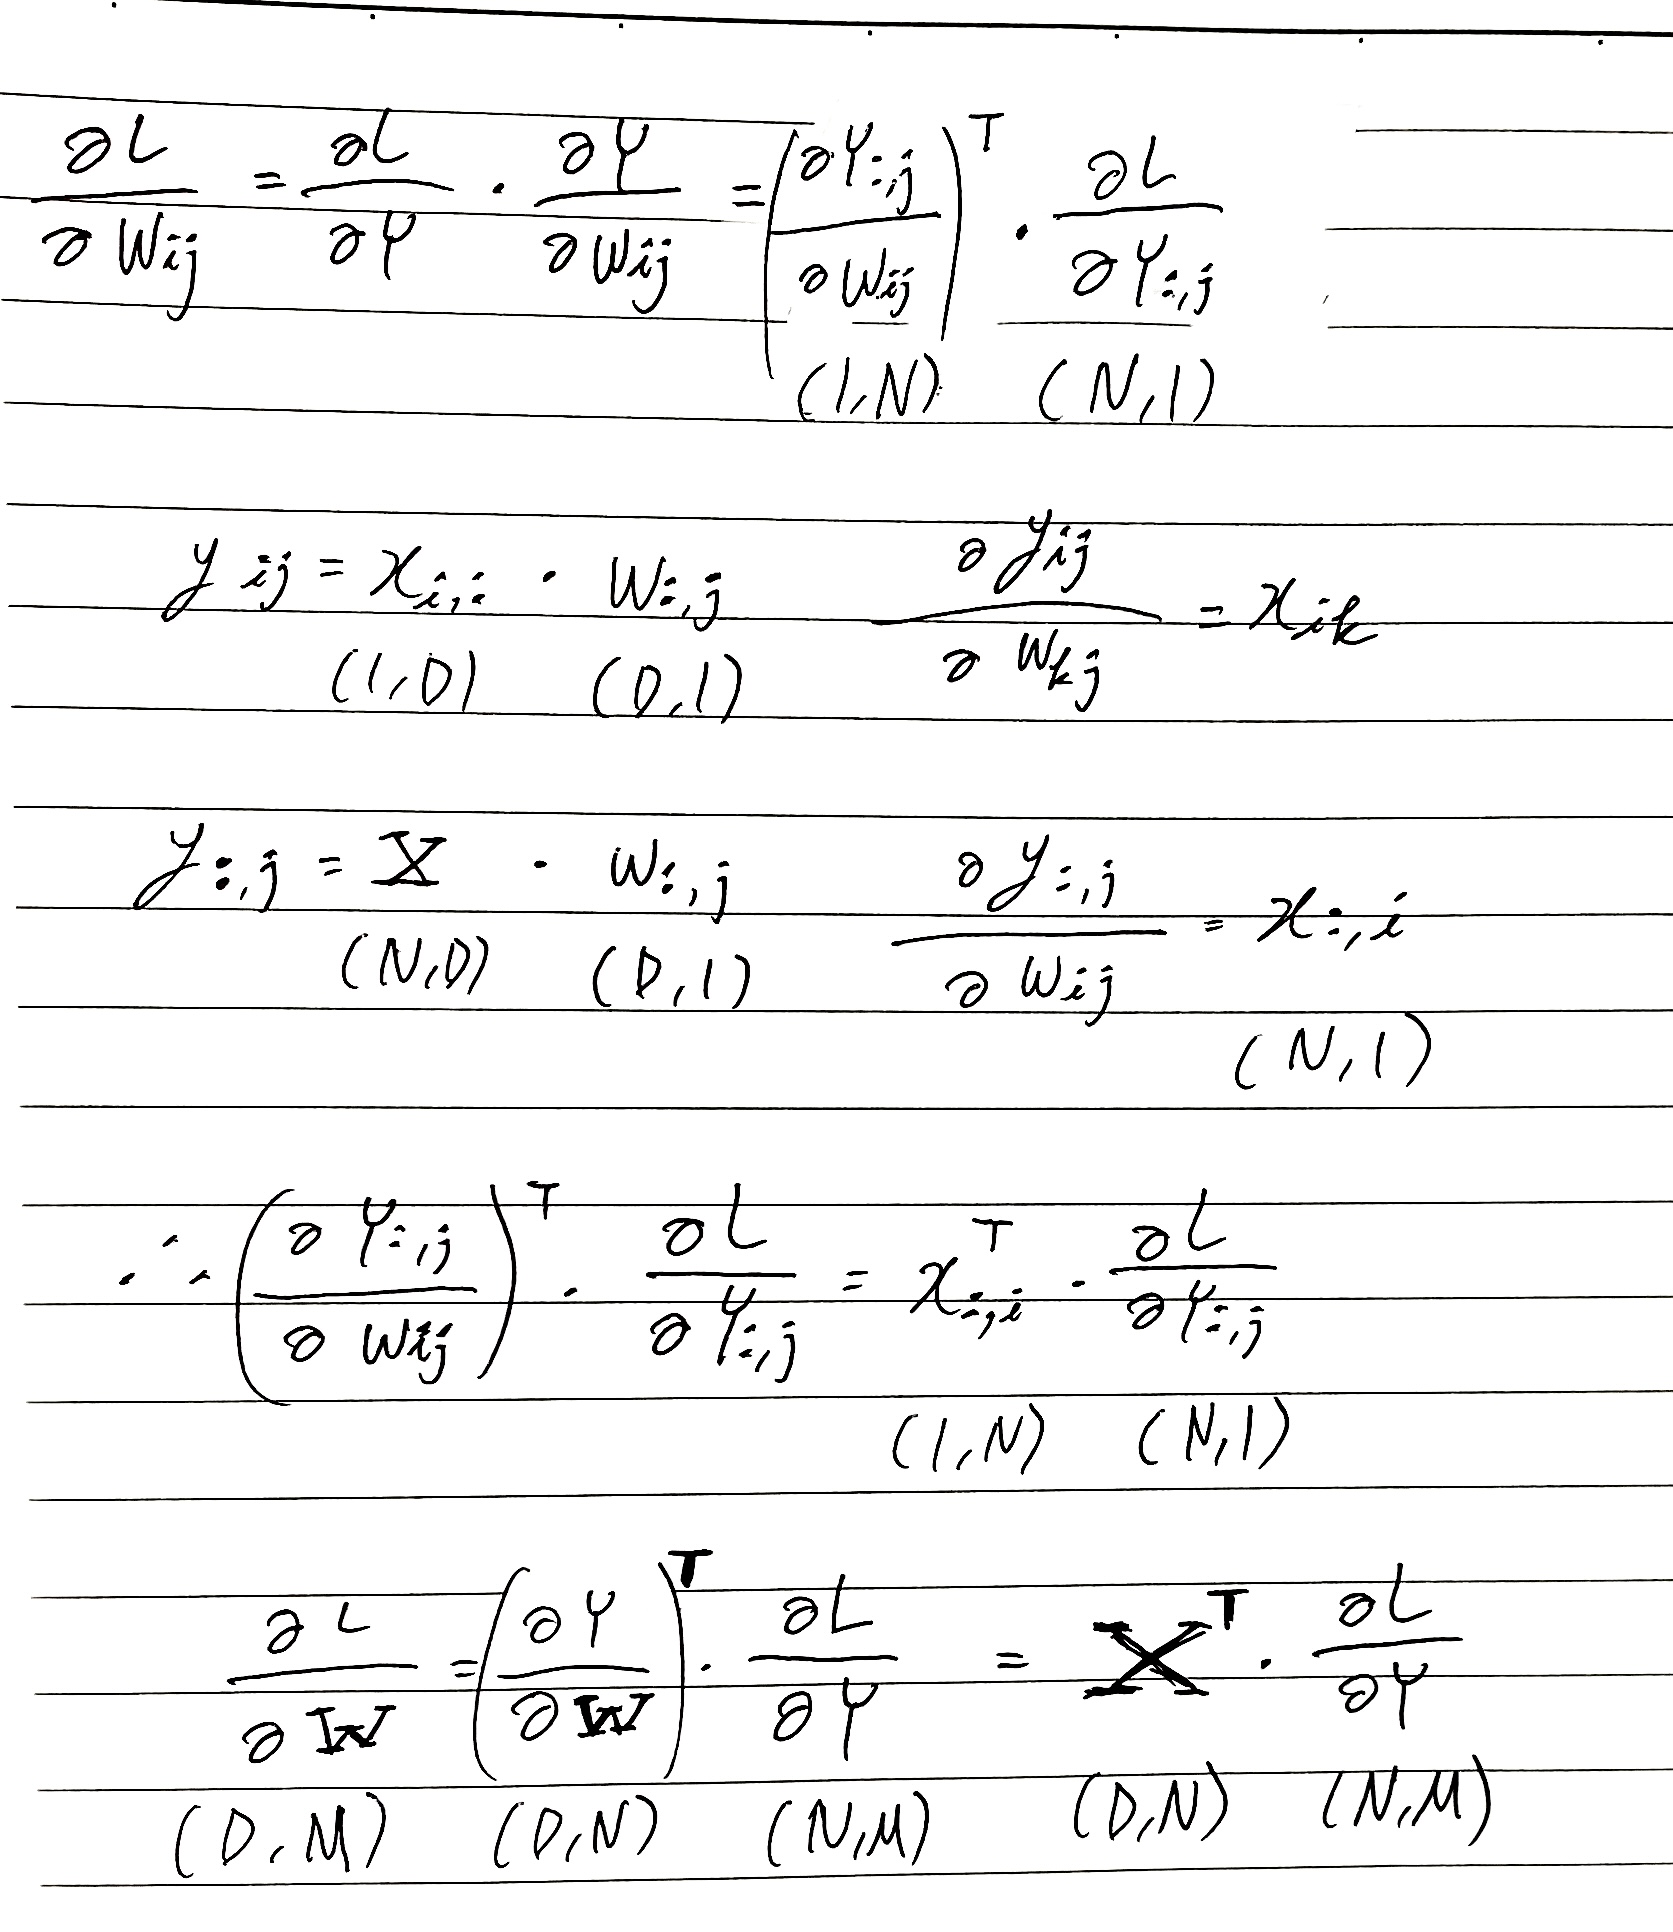 ∂L/∂Wij = ∂L/∂Y · ∂Y/∂Wij = (∂Y:,j/∂Wij)^T · ∂L/∂Y:,j
(1,N) (N,1)
yij = xi,: · W:,j ∂yij/∂Wkj = xik
(1,D) (D,1)
y:,j = X · W:,j ∂y:,j/∂Wij = x:,i
(N,D) (D,1) (N,1)
∴ (∂Y:,j/∂Wij)^T · ∂L/∂Y:,j = x:,i^T · ∂L/∂Y:,j
(1,N) (N,1)
∂L/∂W = (∂Y/∂W)^T · ∂L/∂Y = X^T · ∂L/∂Y
(D,M) (D,N) (N,M) (D,N) (N,M)